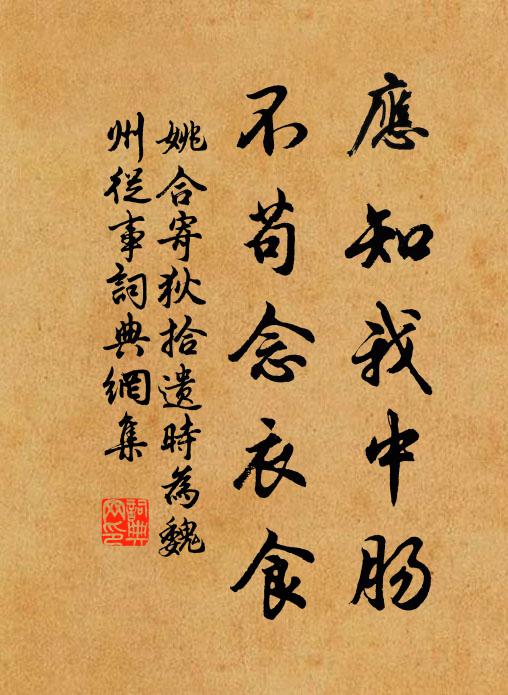 應知我中腸
不苟念衣食
姚合寄狄拾遺時為魏
州從事詞典網集
詞典
网印